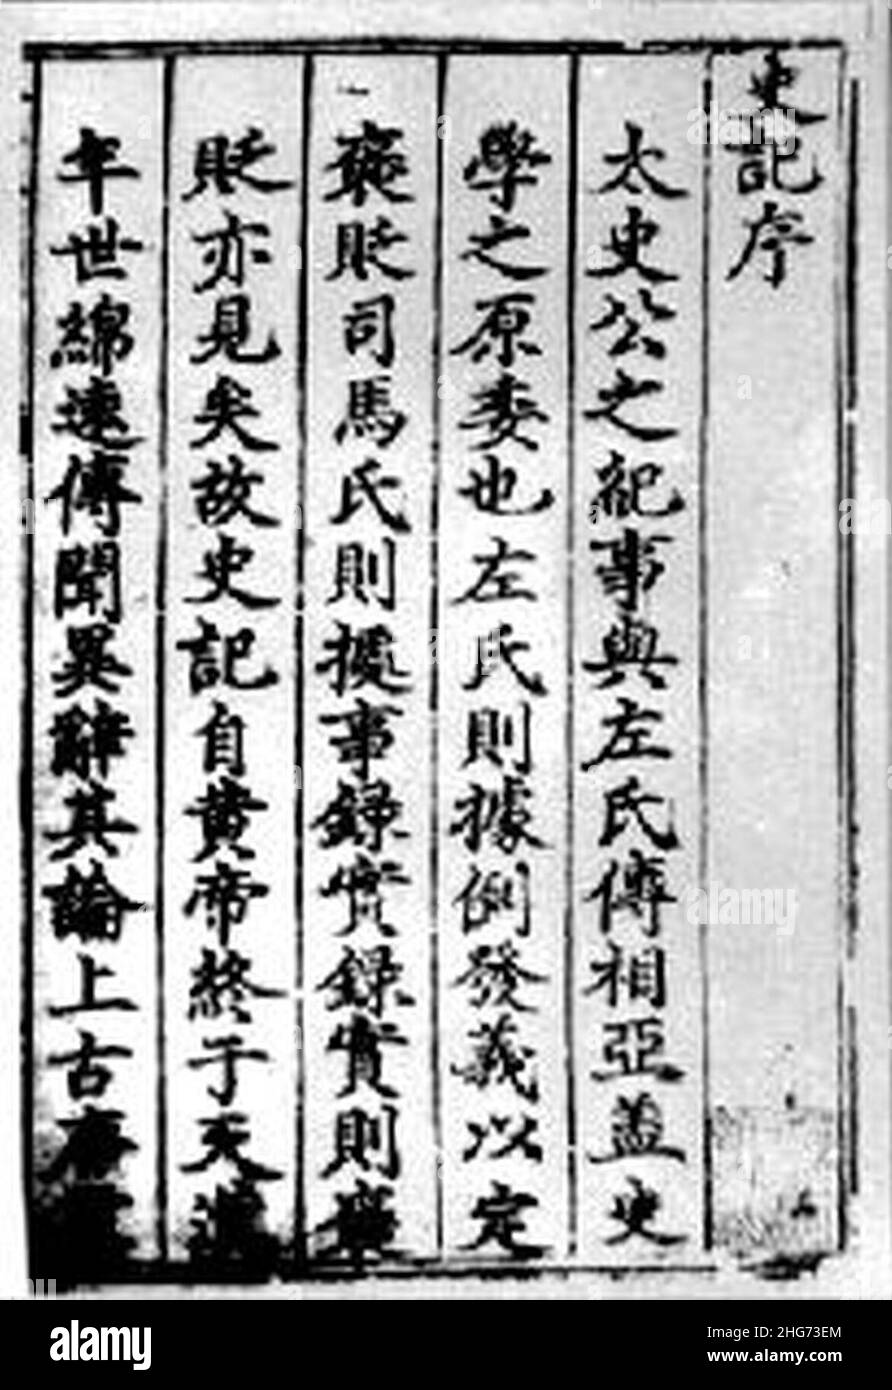 史記序
太史公之紀事與左氏傳相亞蓋史
學之原委也左氏則據例發義以定
褒貶司馬氏則據事録實録實則褒
貶亦見矣故史記自黄帝終于天漢
年世綿遠傳聞異辭其論上古唐
alamy
Image ID: 2HG73EM
www.alamy.com